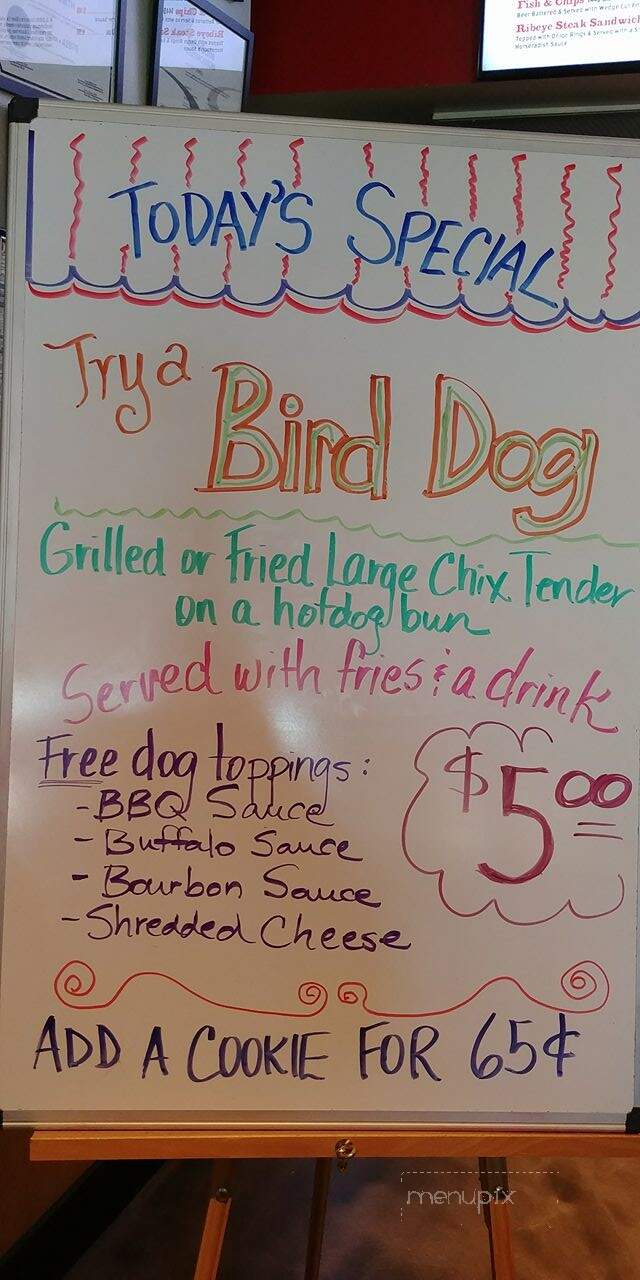 Fish & Chips
Beer Battered & Served with Wedge Cut Fries
Ribeye Steak Sandwich
Topped with Onion Rings & Served with a
Horseradish Sauce
TODAY'S SPECIAL
Try a Bird Dog
Grilled or Fried Large Chix Tender
on a hotdog bun
Served with fries & a drink
Free dog toppings:
- BBQ Sauce
- Buffalo Sauce
- Bourbon Sauce
- Shredded Cheese
$5.00
ADD A COOKIE FOR 65¢
menupix